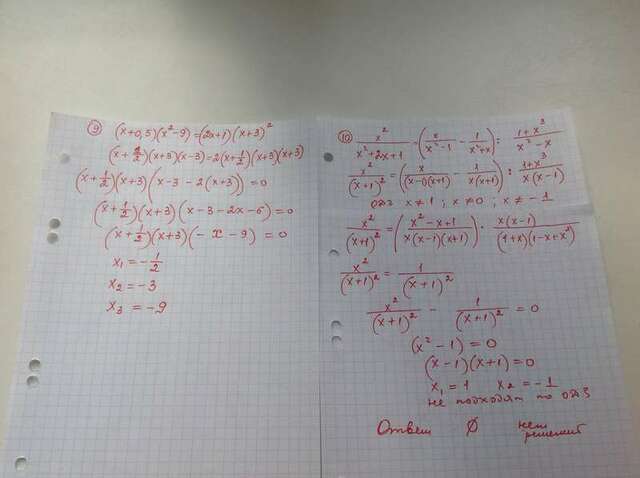 9) (x+0,5)(x²-9)=(2x+1)(x+3)²
(x+1/2)(x+3)(x-3)=2(x+1/2)(x+3)(x+3)
(x+1/2)(x+3)(x-3-2(x+3))=0
(x+1/2)(x+3)(x-3-2x-6)=0
(x+1/2)(x+3)(-x-9)=0
x₁=-1/2
x₂=-3
x₃=-9
10) x²/(x²+2x+1)=(x/(x²-1)-1/(x²+x)):(1+x³)/(x²-x)
x²/(x+1)²=(x/((x-1)(x+1))-1/(x(x+1))):(1+x³)/(x(x-1))
ОДЗ x≠1; x≠0; x≠-1
x²/(x+1)²=((x²-x+1)/(x(x-1)(x+1)))·(x(x-1))/((1+x)(1-x+x²))
x²/(x+1)²=1/(x+1)²
x²/(x+1)²-1/(x+1)²=0
(x²-1)=0
(x-1)(x+1)=0
x₁=1 x₂=-1
не подходят по ОДЗ
Ответ Ø нет
решений